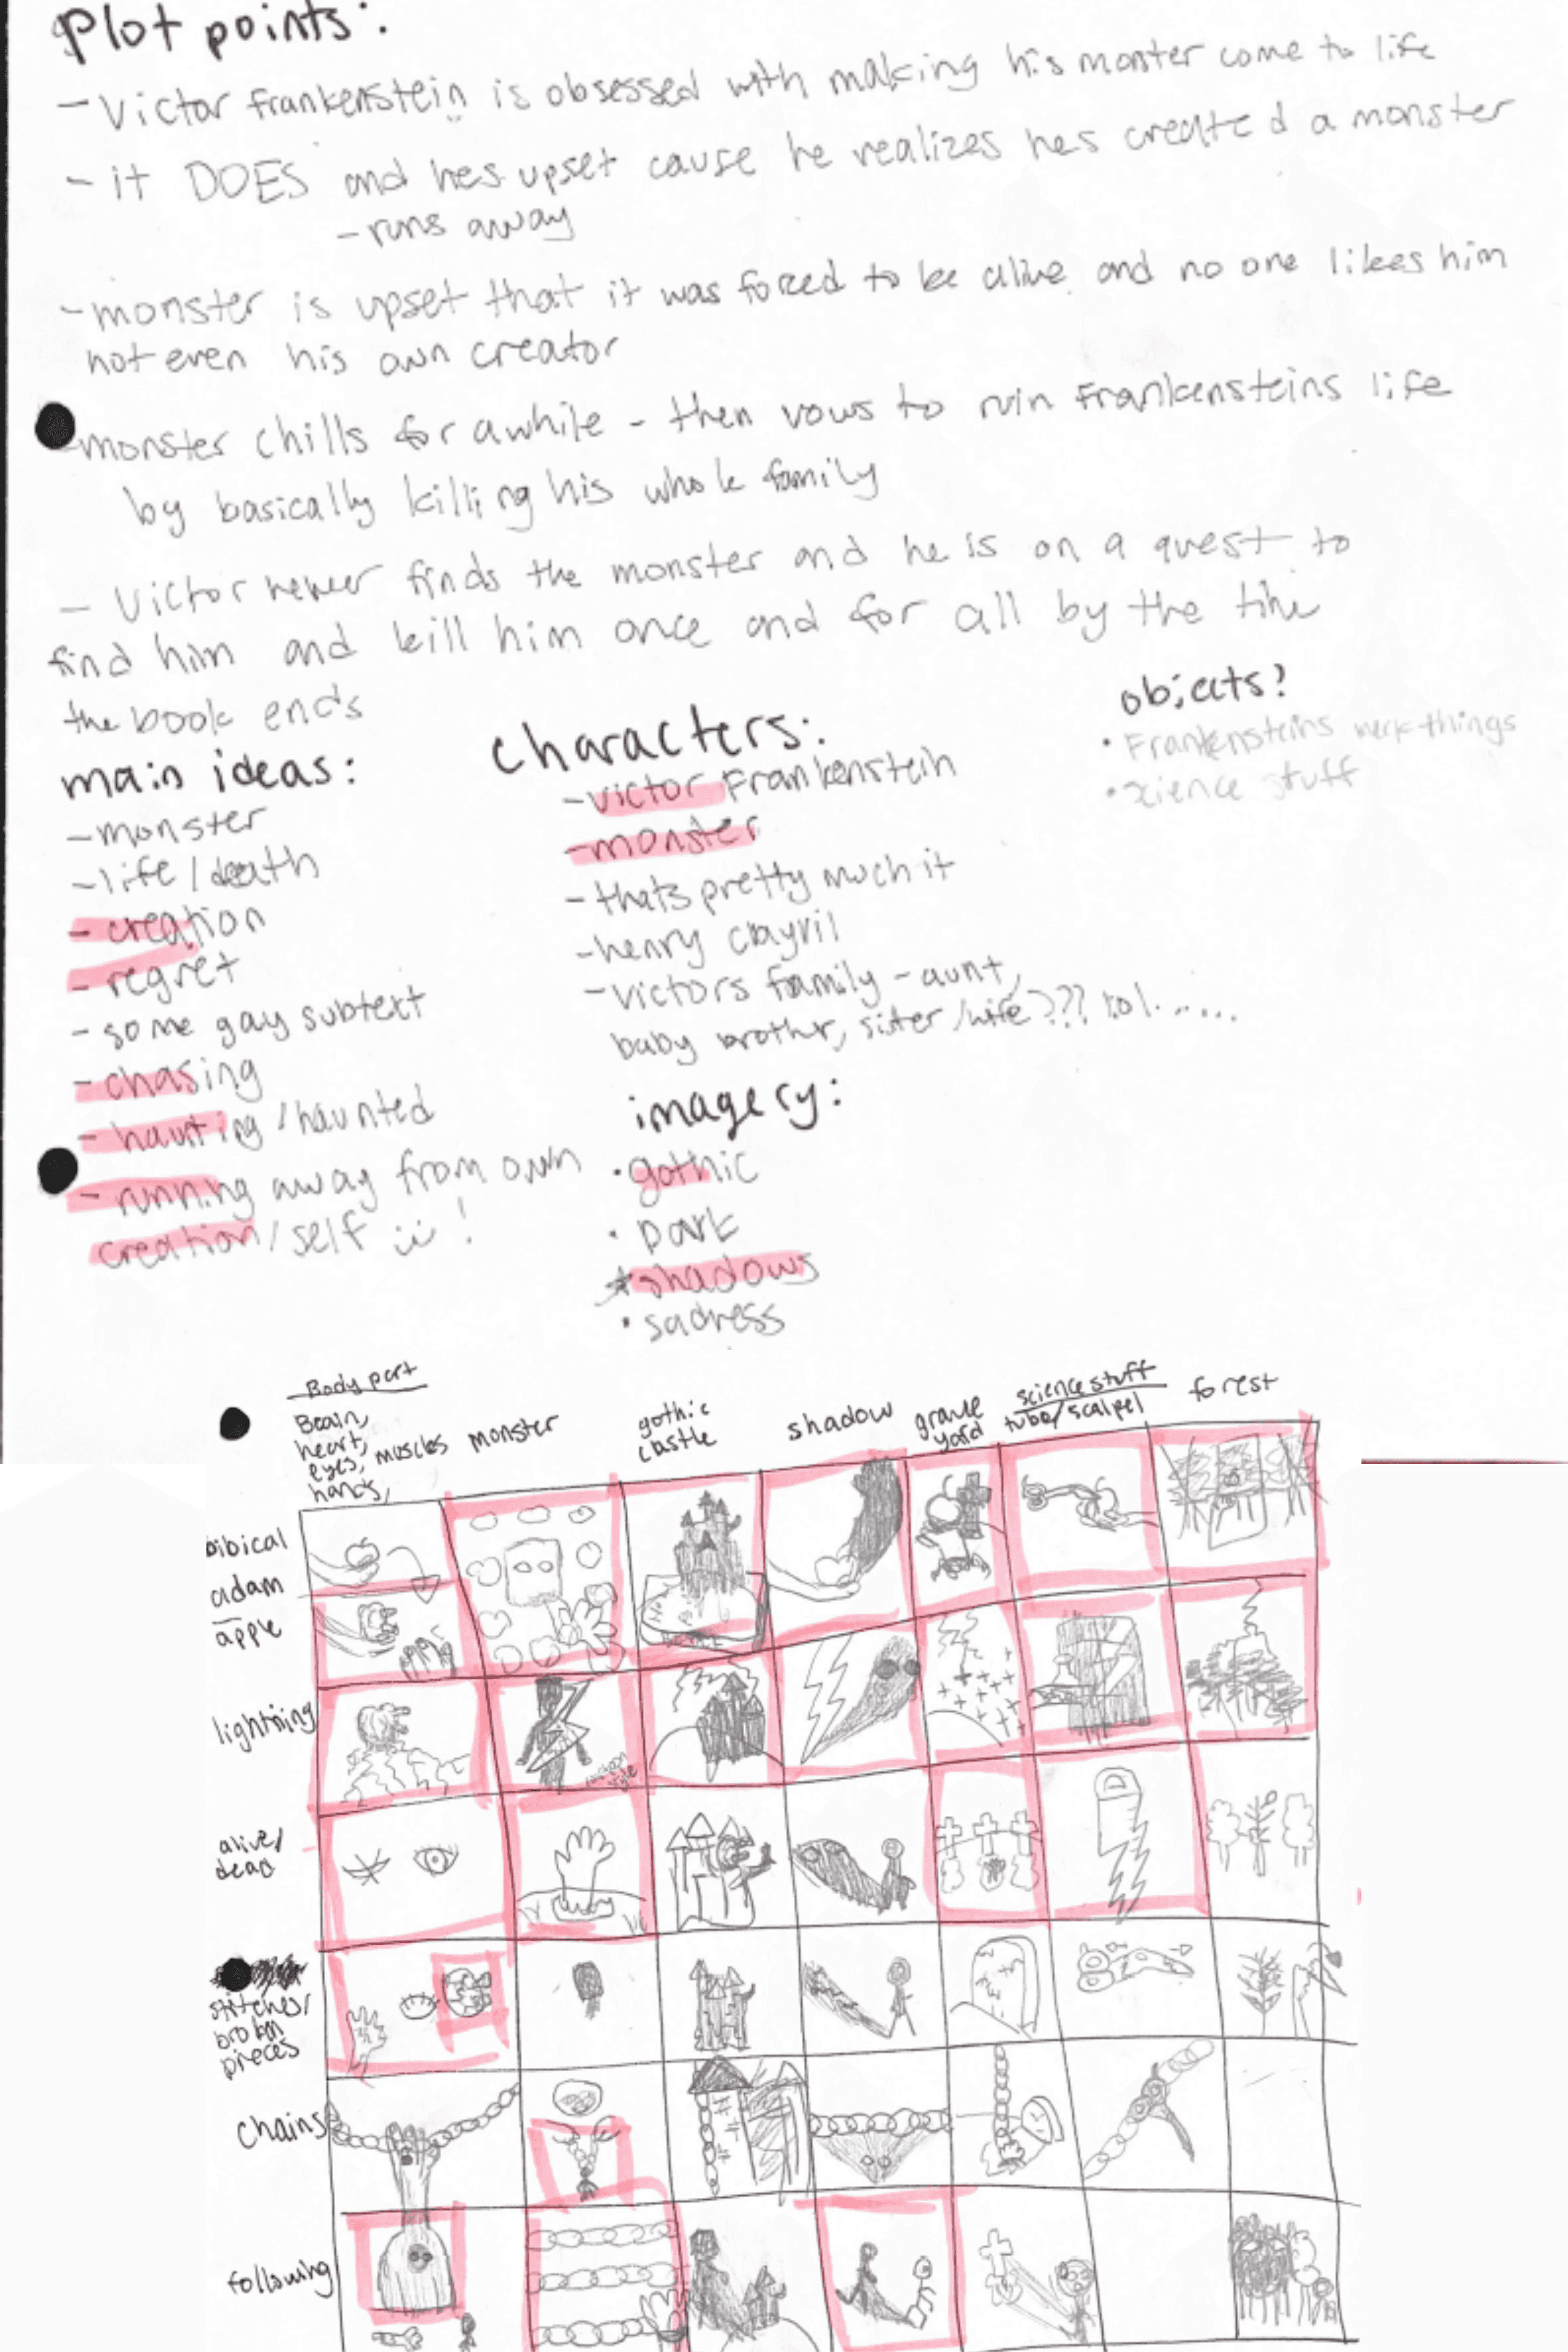 Plot points:
- Victor frankenstein is obsessed with making his monster come to life
- it DOES and hes upset cause he realizes hes created a monster
- runs away
- monster is upset that it was forced to be alive and no one likes him
not even his own creator
- monster chills for awhile - then vows to ruin Frankensteins life
by basically killing his whole family
- Victor never finds the monster and he is on a quest to
find him and kill him once and for all by the time
the book ends
main ideas:
- monster
- life/death
- creation
- regret
- some gay subtext
- chasing
- haunting/haunted
- running away from own
creation/self !
characters:
- victor Frankenstein
- monster
- thats pretty much it
- henry
- victors family - aunt,
baby brother, sister/wife??? lol......
imagery:
• gothic
• Dark
* shadows
• sadness
objects?
• Frankensteins things
• science stuff
Body part
Brain,
heart, muscles
eyes,
hands,
monster
gothic
castle
shadow
grave
yard
science stuff
tube/scalpel
forest
bibical
adam
apple
lightning
alive/
dead
stitches/
broken
pieces
chains
following